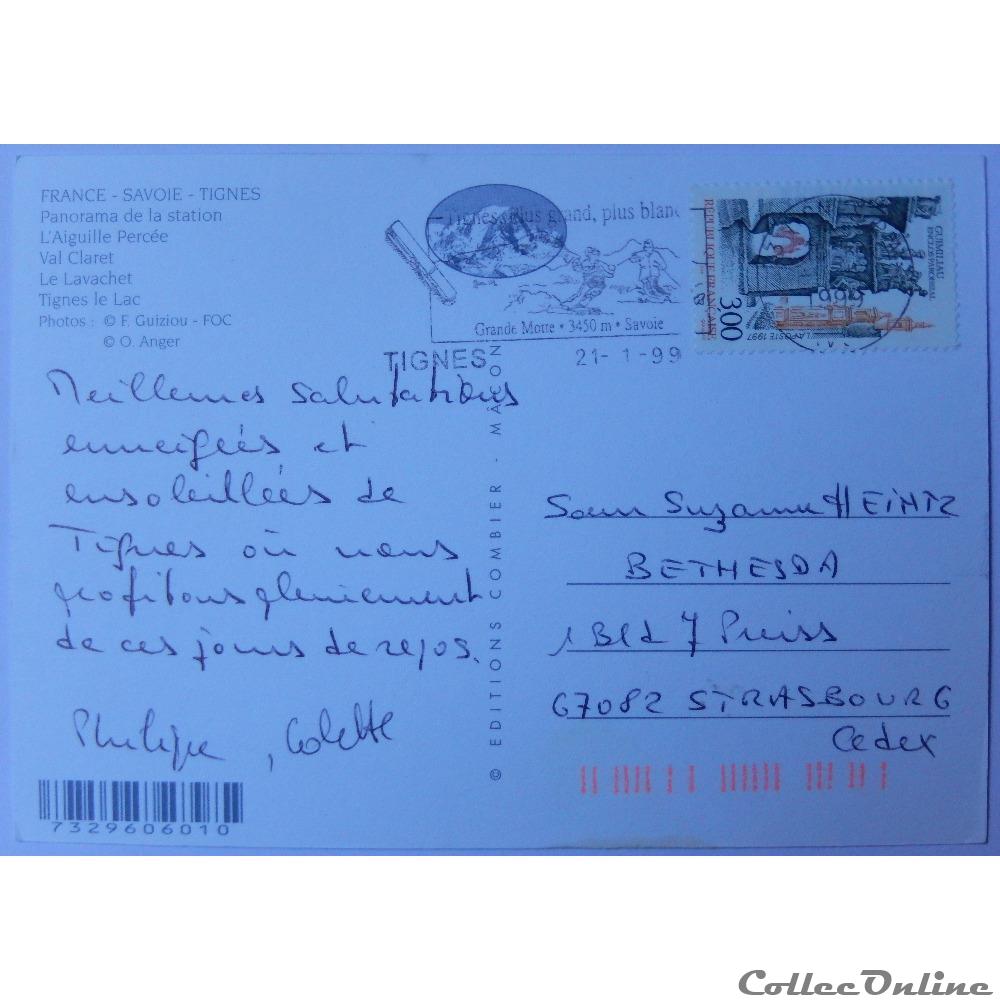 FRANCE - SAVOIE - TIGNES
Panorama de la station
L'Aiguille Percée
Val Claret
Le Lavachet
Tignes le Lac
Photos : © F. Guiziou - FOC
© O. Anger
Tignes, plus grand, plus blanc
Grande Motte • 3450 m • Savoie
TIGNES
21-1-99
REPUBLIQUE FRANÇAISE
3,00
GUIMILIAU
ENCLOS PAROISSIAL
LA POSTE 1997
1999
Meilleures salutations
enneigées et
ensoleillées de
Tignes où nous
profitons pleinement
de ces jours de repos.
Philippe, Colette
© EDITIONS COMBIER - MÂCON
Soeur Suzanne HEINTZ
BETHESDA
1 Bld J Preiss
67082 STRASBOURG
Cedex
7329606010
CollecOnline